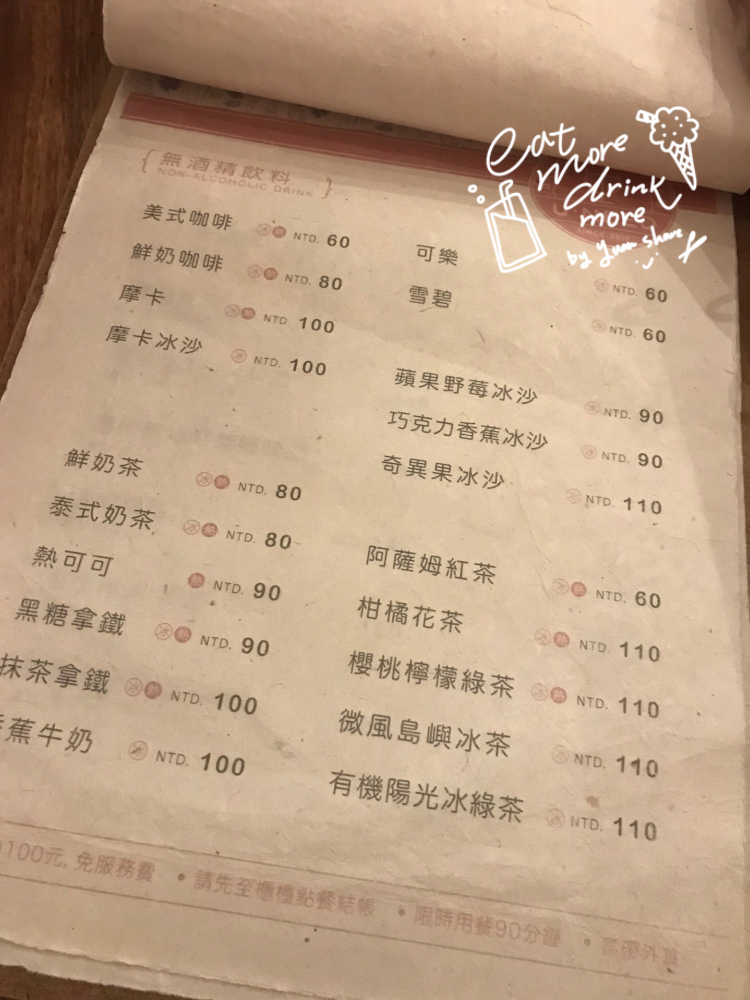 eat
more
drink
more
by yuan share
{ 無酒精飲料 }
NON-ALCOHOLIC DRINK
美式咖啡 冰 熱 NTD. 60
鮮奶咖啡 冰 熱 NTD. 80
摩卡 冰 熱 NTD. 100
摩卡冰沙 冰 NTD. 100
鮮奶茶 冰 熱 NTD. 80
泰式奶茶 冰 熱 NTD. 80
熱可可 熱 NTD. 90
黑糖拿鐵 冰 熱 NTD. 90
抹茶拿鐵 冰 熱 NTD. 100
香蕉牛奶 冰 NTD. 100
可樂 冰 NTD. 60
雪碧 冰 NTD. 60
蘋果野莓冰沙 冰 NTD. 90
巧克力香蕉冰沙 冰 NTD. 90
奇異果冰沙 冰 NTD. 110
阿薩姆紅茶 冰 熱 NTD. 60
柑橘花茶 冰 熱 NTD. 110
櫻桃檸檬綠茶 冰 熱 NTD. 110
微風島嶼冰茶 冰 NTD. 110
有機陽光冰綠茶 冰 NTD. 110
100元, 免服務費 • 請先至櫃檯點餐結帳 • 限時用餐90分鐘 • 禁帶外食